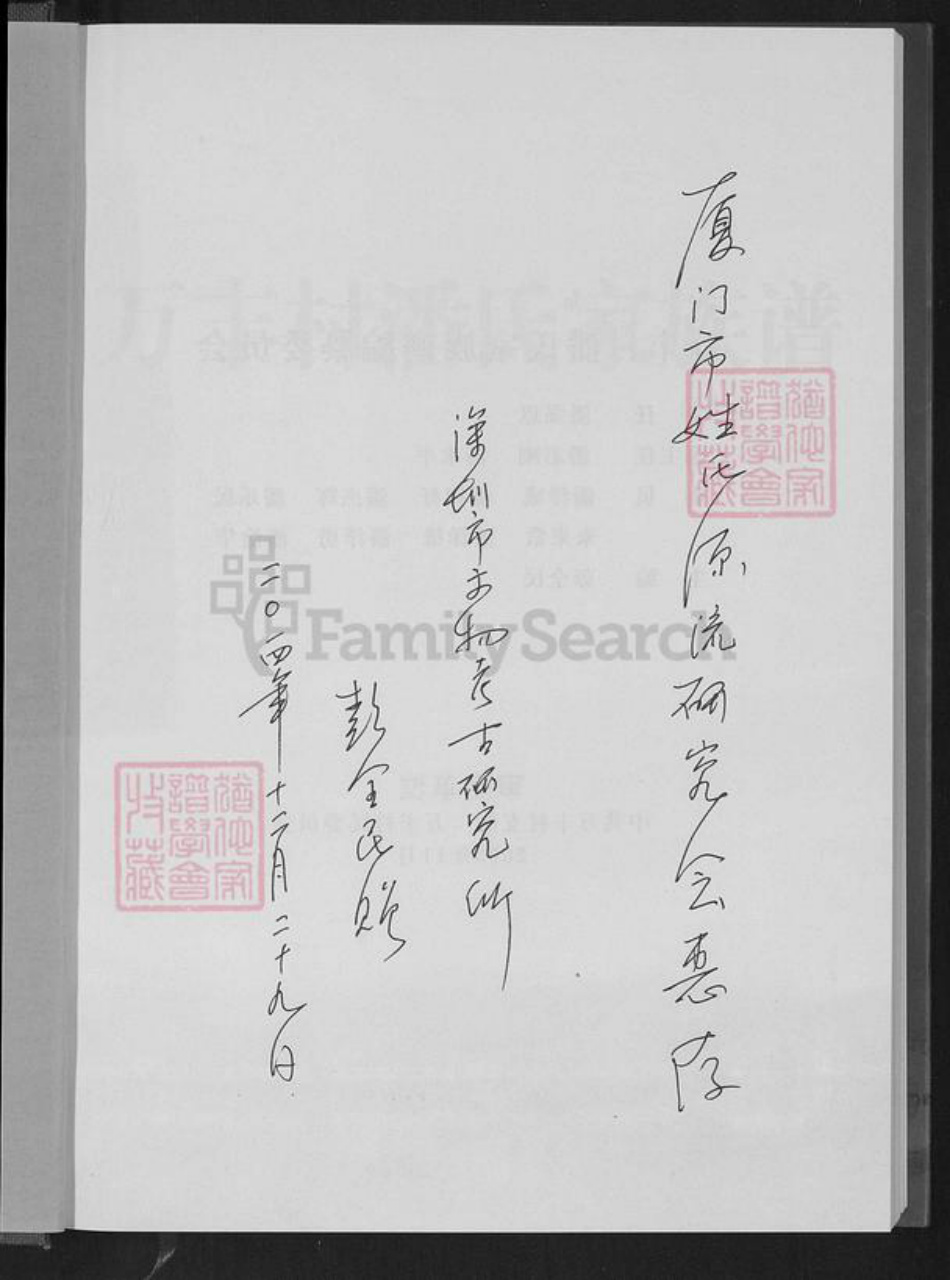 厦门市姓氏源流研究会惠存
深圳市文物考古研究所
彭全民赠
二〇一四年十二月二十九日
FamilySearch
譜學會
藏
譜學會
藏